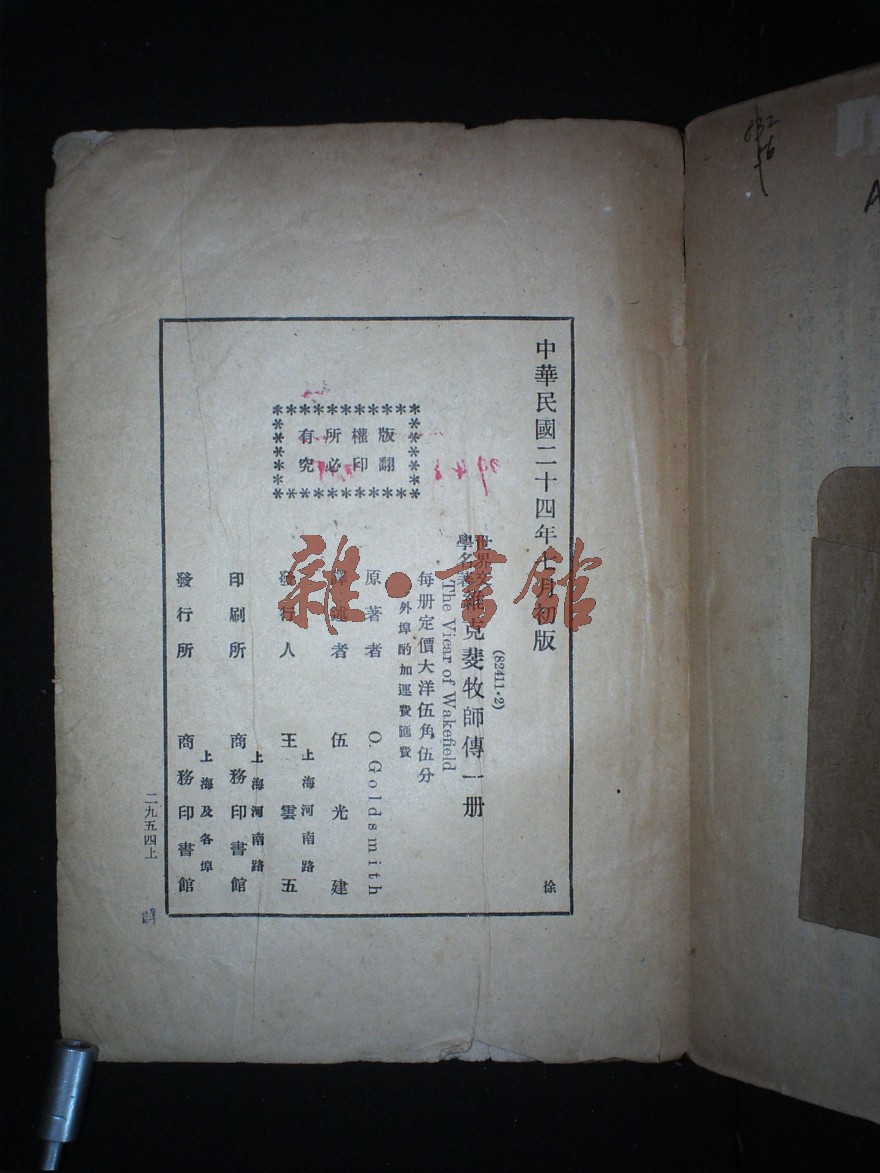 中華民國二十四年七月初版
(82411·2)
世界文學名著 維克斐牧師傳一册
The Vicar of Wakefield
每册定價大洋伍角伍分
外埠酌加運費匯費
版權所有
翻印必究
原著者 O. Goldsmith
譯述者 伍光建
發行人 王雲五
上海河南路
印刷所 商務印書館
上海河南路
發行所 商務印書館
上海及各埠
徐
二九五四上
雜·書館
832